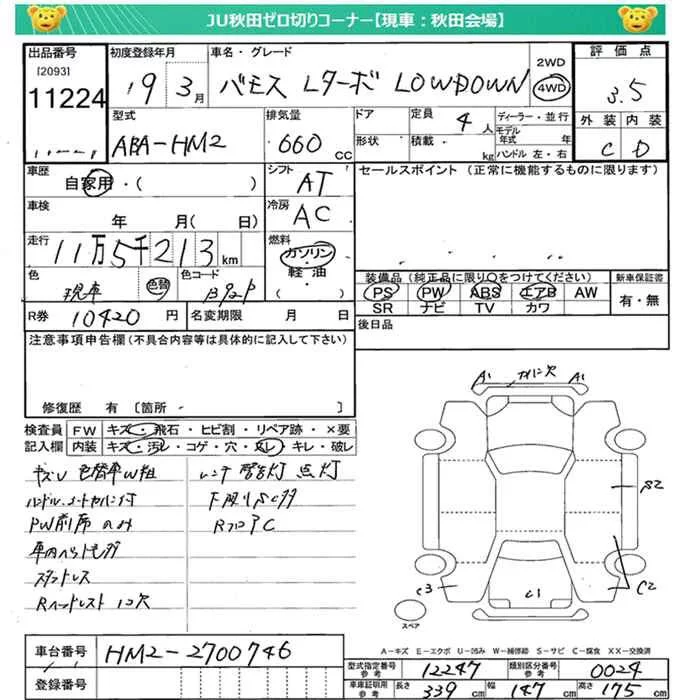 JU秋田ゼロ切りコーナー【現車：秋田会場】
出品番号 [2093] 11224
初度登録年月 19 3月
車名・グレード バモス Lターボ LOWDOWN
2WD 4WD
評価点 3.5
外装 C 内装 D
型式 ABA-HM2
排気量 660 cc
ドア 形状
定員 4人 積載 kg
ディーラー・並行
モデル年式 年
ハンドル 左・右
車歴 自家用・( )
シフト AT
セールスポイント (正常に機能するものに限ります)
車検 年 月( 日)
冷房 AC
走行 11万5千213km
燃料 ガソリン・軽油 ( )
色 現車 色替
色コード B92P
装備品(純正品に限り○をつけてください)
PS PW ABS エアB AW
SR ナビ TV カワ
新車保証書 有・無
R券 10420円
名変期限 月 日
後日品
注意事項申告欄(不具合内容等は具体的に記入して下さい)
修復歴 有 [箇所 ]
検査員記入欄
FW キズ・飛石・ヒビ割・リペア跡・×要
内装 キズ・汚レ・コゲ・穴・スレ・キレ・破レ
エンジン警告灯 点灯
PW前席のみ
スタッドレス
Rヘッドレスト 1コ欠
A1 A1
B2
C3 C1 C2
スペア
A－キズ E－エクボ U－凹み W－補修跡 S－サビ C－腐食 XX－交換済
車台番号 HM2-2700746
登録番号
型式指定番号参考 12247
類別区分番号参考 0024
車庫証明用参考 長さ 339cm 幅 147cm 高さ 175cm